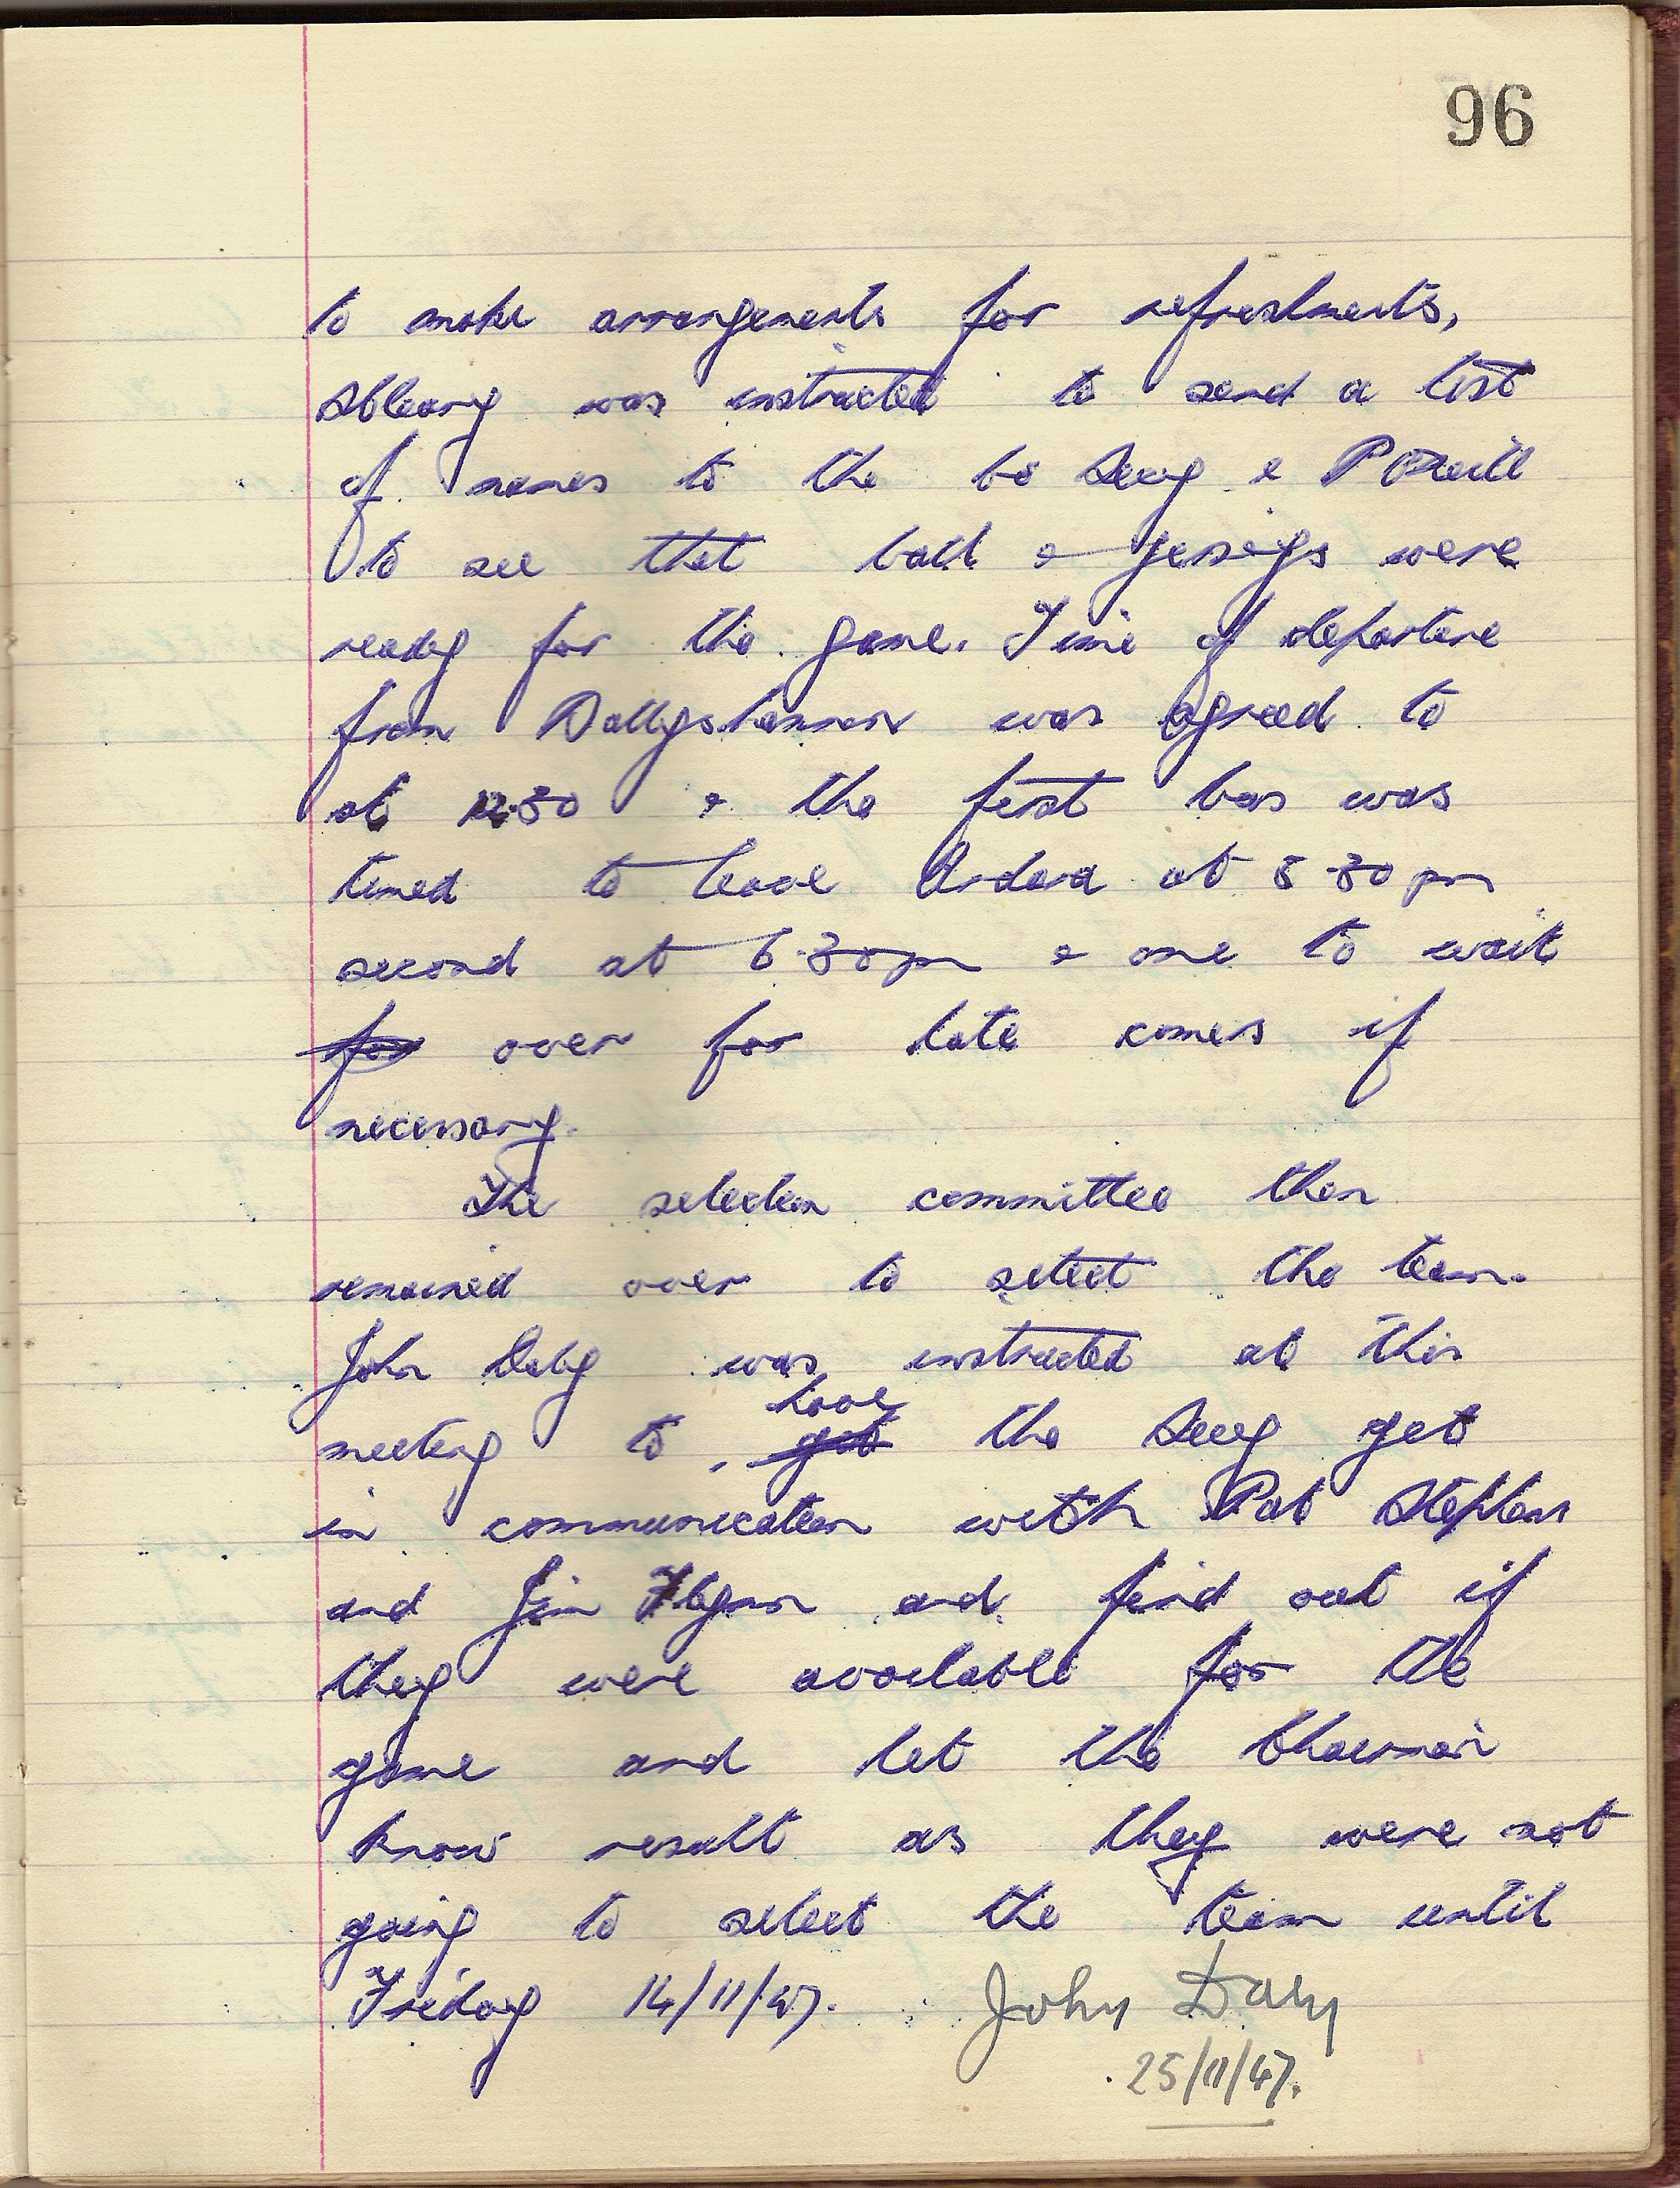 96
to make arrangements for refreshments,
S Cleary was instructed to send a list
of names to the Co Secy & P O Neill
to see that ball & jerseys were
ready for the game. Time of departure
from Ballyshannon was agreed to
at 12.30 & the first bus was
timed to leave Ardara at 5 30 pm
second at 6.30 pm & one to wait
for over for late comers if
necessary.
The selection committee then
remained over to select the team.
John Daly was instructed at this
have
meeting to get the Secy get
in communication with Pat Stephens
and Jim and find out if
they were available for the
game and let the Chairman
know result as they were not
going to select the team until
Friday 14/11/47. John Daly
25/11/47.